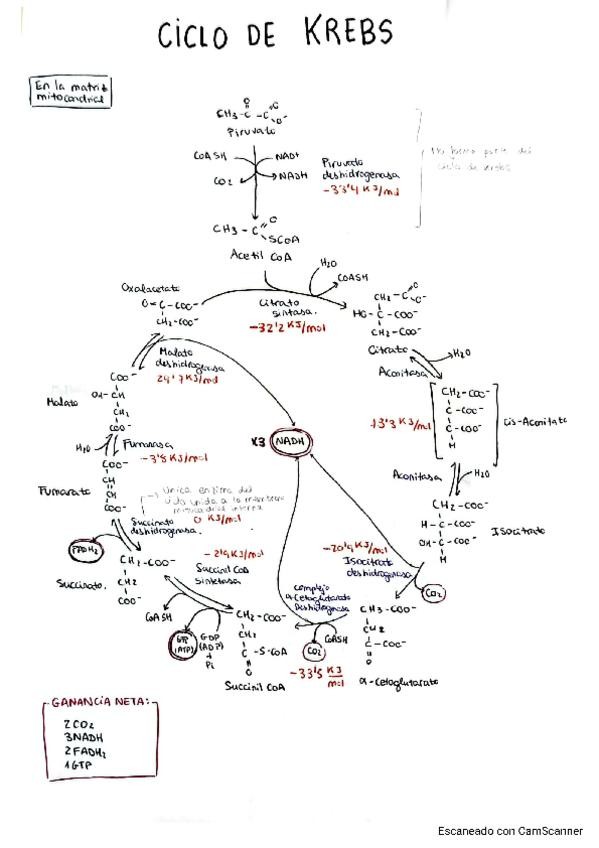 CICLO DE KREBS
En la matriz
mitocondrial
O
CH₃-C-C
O
O⁻
Piruvato
CoASH
NAD+
CO₂
NADH
Piruvato
deshidrogenasa
-33'4 KJ/mol
No forma parte del
ciclo de Krebs
CH₃-C
O
SCoA
Acetil CoA
H₂O
CoASH
Citrato
sintasa.
-32'2 KJ/mol
Oxalacetato
O=C-COO⁻
CH₂-COO⁻
CH₂-C
O
O⁻
HO-C-COO⁻
CH₂-COO⁻
Citrato
H₂O
Aconitasa
CH₂-COO⁻
C-COO⁻
C-COO⁻
H
13'3 KJ/mol
Cis-Aconitato
Aconitasa
H₂O
CH₂-COO⁻
H-C-COO⁻
OH-C-COO⁻
H
Isocitrato
-20'9 KJ/mol
Isocitrato
deshidrogenasa
CO₂
CH₃-COO⁻
CH₂
C-COO⁻
O
α-Cetoglutarato
Complejo
α-Cetoglutarato
Deshidrogenasa
CoASH
CO₂
-33'5 KJ/mol
CH₂-COO⁻
CH₂
C-S-CoA
O
Succinil CoA
-2'9 KJ/mol
Succinil CoA
sintetasa
GDP
(ADP)
+
Pi
GTP
(ATP)
CoASH
CH₂-COO⁻
CH₂
COO⁻
Succinato.
FADH₂
Única enzima del
ciclo unida a la membrana
mitocondrial interna
0 KJ/mol
Succinato
deshidrogenasa.
COO⁻
CH
CH
COO⁻
Fumarato
H₂O
Fumarasa
-3'8 KJ/mol
COO⁻
OH-CH
CH₂
COO⁻
Malato
Malato
deshidrogenasa
29'7 KJ/mol
x3
NADH
GANANCIA NETA:
2CO₂
3NADH
2FADH₂
1GTP
Escaneado con CamScanner